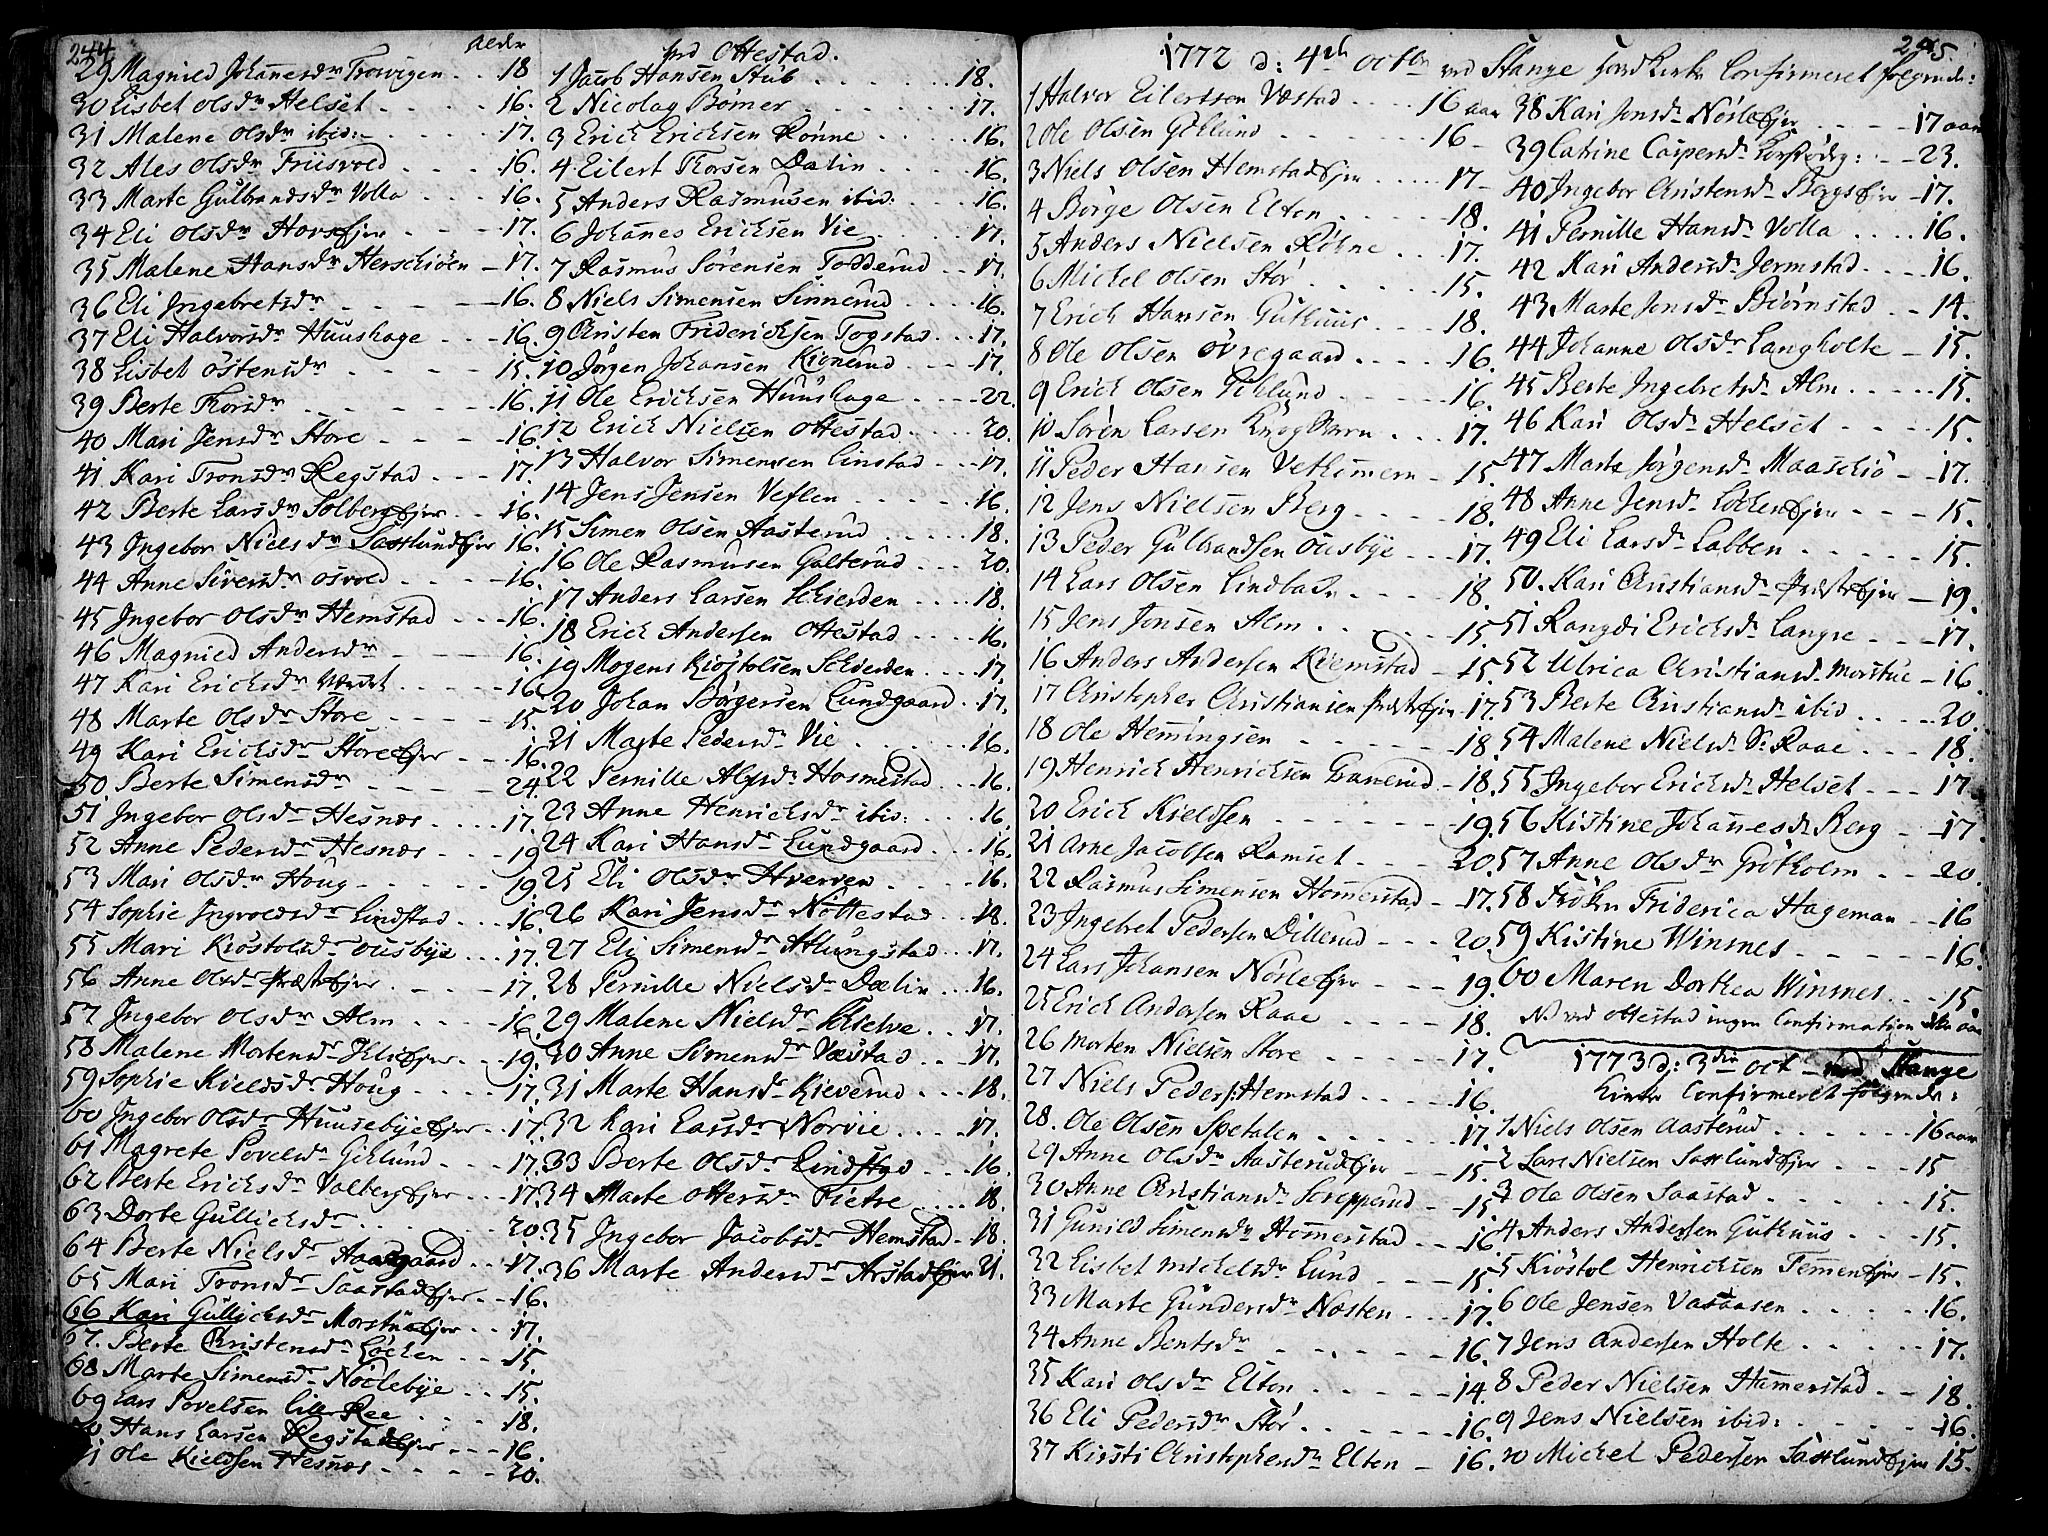 244
Alder
29 Magnied Johannesdr Trowigen . . 18
30 Lisbet Olsdr Helset . . . . 16.
31 Malene Olsdr ibid: . . . . 17.
32 Ales Olsdr Friisvold . . . . 16.
33 Marte Gulbrandsdr Volla . . . 16.
34 Eli Olsdr Horsejer . . . 17.
35 Malene Hansdr Herschiöen . 17.
36 Eli Ingebretsdr . . . . 16.
37 Eli Halvorsdr Huushage . . . 16.
38 Lisbet Östensdr . . . . 15.
39 Berte Thorsdr . . . . 16.
40 Mari Jensdr Store . . . . 16.
41 Kari Tronsdr Regstad . . . 17.
42 Berte Larsdr Solberg Ejer . . 16.
43 Ingebor Nielsdr Saxlund Ejer 16.
44 Anne Siversdr Osvold . . . . 16.
45 Ingebor Olsdr Hemstad . . . 16.
46 Magnied Andersdr . . . . 16.
47 Kari Ericksdr . . . . 16.
48 Marte Olsdr Store . . . . 15.
49 Kari Ericksdr Store Ejer . . 16.
50 Berte Simensdr . . . . 24.
51 Ingebor Olsdr Hesnæs . . . . 17.
52 Anne Pedersdr Hesnæs . . . 19
53 Mari Olsdr Houg . . . . 19
54 Sophie Ingvoldsdr Lindstad . . . 16.
55 Mari Kiöstolsdr Ousbÿe . . . 17.
56 Anne Olsdr Præst Ejer . . . . 17.
57 Ingebor Olsdr Alm . . . . 16.
58 Malene Mortensdr Ejer . . . 19.
59 Sophie Kieldsdr Houg . . . . 17.
60 Ingebor Olsdr Huusebÿe Ejer . 17.
61 Magrete Povelsdr Göklund . . . 17.
62 Berte Ericksdr Valberg Ejer . . 17.
63 Dorte Gullichsdr . . . . 20.
64 Berte Nielsdr Aadgaard . . 17.
65 Mari Tronsdr Saastad Ejer . . 16.
66 Kari Gullichsdr Morstue Ejer . . 17.
67. Berte Christensdr Löcken . . 15
68 Marte Simensdr Nöclebÿe . . 15.
69 Lars Povelsen Lille Ree . . . 18.
70 Hans Larsen Regstad Ejer . . . 16.
71 Ole Kieldsen Hesnæs . . . . 20.
ved Ottestad.
1 Jacob Hansen Stub . . . . 18.
2 Nicolay Bömer . . . . 17.
3 Erick Ericksen Rönne . . . . 16.
4 Eilert Thorsen Dælin . . . . 16.
5 Anders Rasmusen ibid: . . . . 16.
6 Johanes Ericksen Vie . . . . 17.
7 Rasmus Sörensen Todderud . . 17.
8 Niels Simensen Sinnerud . . . . 16.
9 Christen Friderichsen Togstad . . 17.
10 Jörgen Johansen Kionerud . . . 17.
11 Ole Ericksen Huushage . . . . 22.
12 Erick Nielsen Ottestad . . . . 20.
13 Halvor Simensen Linstad . . . 17.
14 Jens Jensen Veflen . . . . 16.
15 Simen Olsen Aasterud . . . . 18.
16 Ole Rasmusen Galterud . . . 20.
17 Anders Larsen Schierden . . . . 18.
18 Erick Andersen Ottestad . . . . 16.
19 Mogens Kiöstolsen Schierden . . . . 17.
20 Johan Börgersen Lundgaard . 17.
21 Marte Pedersdr Vie . . . . 16.
22 Pernille Alfsdr Hosmestad . . . 16.
23 Anne Henrichsdr ibid: . . . . 16
24 Kari Hansdr Lundgaard . . . 16.
25 Eli Olsdr Hverven . . . . 16.
26 Kari Jensdr Nöttestad . . . 18.
27 Eli Simensdr Atlungstad . . . 17.
28 Pernille Nielsdr Dælin . . . 16.
29 Malene Nielsdr Skielve . . . 17.
30 Anne Simensdr Væstad . . . 17.
31 Marte Hansdr Kieverud . . . 18.
32 Kari Larsdr Norvie . . . . 17.
33 Berte Olsdr Lindstad . . . 16.
34 Marte Ottersdr Tietre . . . . 18.
35 Ingebor Jacobsdr Hemstad . 18.
36 Marte Andersdr Arstad Ejer 21.
245.
1772 d: 4de octbr ved Stange hovedkirke Confirmeret følgende:
1 Halvor Eilertsen Væstad . . . . 16 aar
2 Ole Olsen Göklund . . . . 16 -
3 Niels Olsen Hemstad Ejer . . . . 17 -
4 Börge Olsen Elton . . . . 18.
5 Anders Nielsen Röhne . . . 17.
6 Michel Olsen Stor . . . . 15.
7 Erick Hansen Guthuus . . . 18.
8 Ole Olsen Övregaard . . . . 16.
9 Erick Olsen Göklund . . . . 16.
10 Sören Larsen . . . 17.
11 Peder Hansen Vethamern . 15.
12 Jens Nielsen Berg . . . . 18.
13 Peder Gulbrandsen Ousbÿe . . . 17.
14 Lars Olsen Lindbak . . . . 18.
15 Jens Jonsen Alm . . . . 15.
16 Anders Andersen Kiemstad . 15.
17 Christopher Christiansen Præst Ejer . 17.
18 Ole Hemingsen . . . . 18.
19 Henrich Henrichsen Granerud . 18.
20 Erick Kieldsen . . . . 19.
21 Arne Jacobsen Ramset . . . 20.
22 Rasmus Simensen Hommerstad . . 17.
23 Ingebret Pedersen Dillerud . . . 20.
24 Lars Johansen Nörle Ejer . . . 19.
25 Erick Andersen Raae . . . . 18.
26 Morten Nielsen Store . . . . 17.
27 Niels Peders: Hemstad . . . . 16.
28. Ole Olsen Spetalen . . . . 17.
29 Anne Olsdr Aasterud Ejer . . . 15.
30 Anne Christiansdr Screpperud . 15
31 Gunild Simensdr Homerstad . . 16
32 Lisbet Michelsdr Lund . . . 15.
33 Marte Gundersdr Næsten . . . 17.
34 Anne Bentsdr . . . . 16.
35 Kari Olsdr Elton . . . . 14.
36 Eli Pedersdr Stor . . . . 16.
37 Kirsti Christophersdr Elton . 16.
38 Kari Jensdr Nörle Ejer . . . . 17 aar
39 Catrine Caspersdr . . 23.
40 Ingebor Christensdr Bergs Ejer . 17.
41 Pernille Hansdr Volla . . . . 16.
42 Kari Andersdr Jermstad . . . 16.
43 Marte Jensdr Biörnstad . . 14.
44 Johanne Olsdr Langholte . 15.
45 Berte Ingebretsdr Alm . . . . 15.
46 Kari Olsdr Helset . . . . 15.
47 Marte Jörgensdr Maaschiö . . 17.
48 Anne Jensdr Löcken Ejer . . . 15.
49 Eli Larsdr Labben . . . . 15.
50. Kari Christiansdr Præst Ejer . 19.
51 Rangdi Ericksdr Langse . . . 17.
52 Ulrica Christiansdr Morstue . 16.
53 Berte Christiansdr ibid . . . . 20.
54 Malene Nielsdr S: Raae . . . 18.
55 Ingebor Ericksdr Helset . . . 17
56 Kistine Johannesdr Berg . . 17.
57 Anne Olsdr Grötholm . . 20.
58 Frökn Friderica Hageman . . 16
59 Kistine Winsnes . . . . 16.
60 Maren Dorthea Winsnes . . . 15
NB ved Ottestad ingen Confirmation dette aar
1773 d: 3die oct: ved Stange
Kirke Confirmeret følgende:
1 Niels Olsen Aasterud . . . . 16 aar
2 Lars Nielsen Saxlund Ejer . . . 15
3 Ole Olsen Saastad . . . . 15.
4 Anders Andersen Guthuus . . . 15.
5 Kiöstol Henrichsen Femmen Ejer . 15.
6 Ole Jensen Vasaasen . . . . 16.
7 Jens Andersen Holte . . . . 17.
8 Peder Nielsen Hamerstad . . 18.
9 Jens Nielsen ibid: . . . . 16.
10 Michel Pedersen Saxlund Ejer 15.